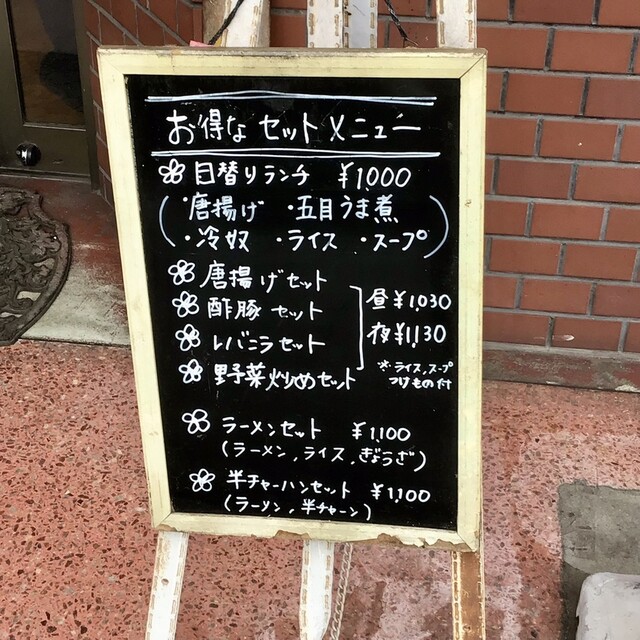 お得なセットメニュー
日替りランチ ¥1000
(・唐揚げ ・五目うま煮
・冷奴 ・ライス ・スープ)
唐揚げセット
酢豚セット
レバニラセット
野菜炒めセット
昼¥1,030
夜¥1,130
※・ライス,スープ
つけもの付
ラーメンセット ¥1,100
(ラーメン,ライス,ぎょうざ)
半チャーハンセット ¥1,100
(ラーメン,半チャーン)